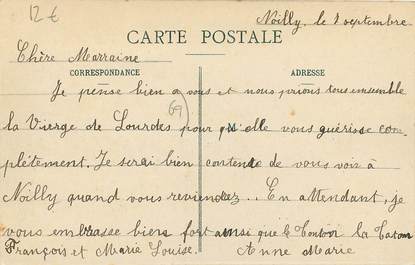 12 €
Noilly, le 1 septembre
CARTE POSTALE
Chère Marraine
CORRESPONDANCE
ADRESSE
Je pense bien a vous et nous prions tous ensemble
69
la Vierge de Lourdes pour qu'elle vous guérisse com
M
plètement. Je serai bien contente de vous voir à
Noilly quand vous reviendez. En attendant, je
vous embrasse biens fort ainsi que le Tonton la Tatan
François et Marie Louise. Anne Marie